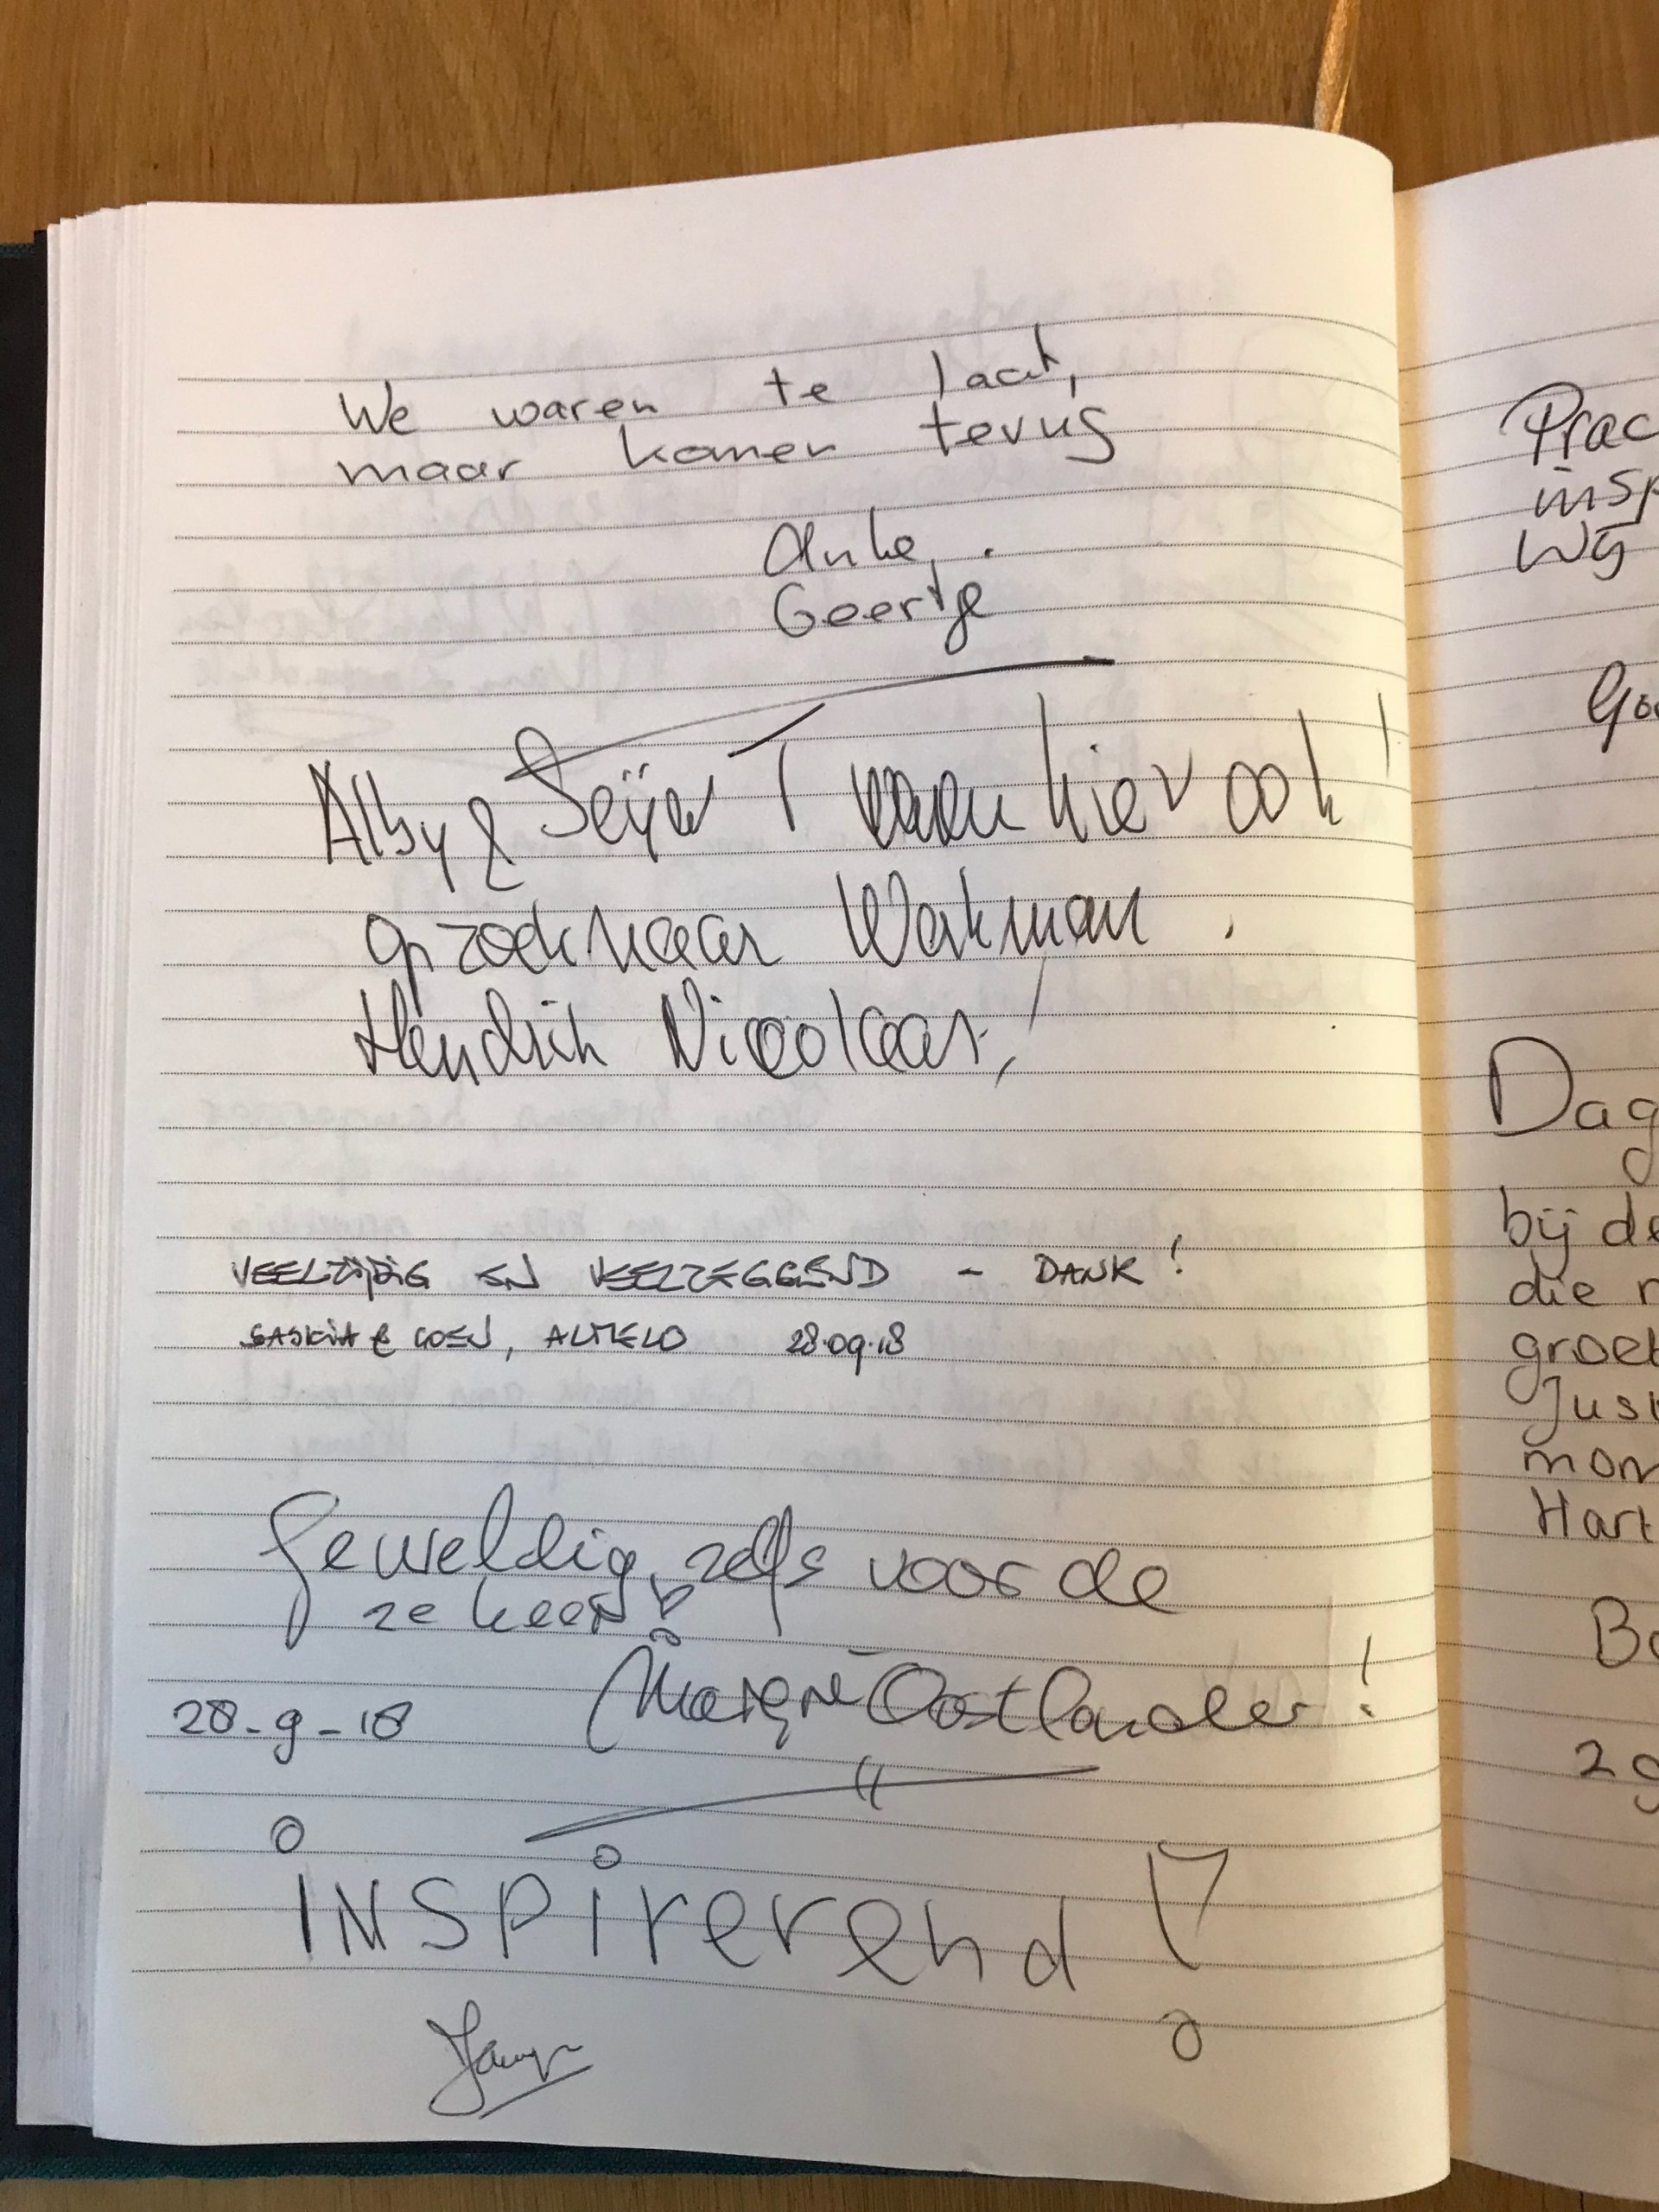 We waren te laat,
maar komen terug
Anke,
Geertje
Alby & Seijo T waren hier ook!
op zoek naar Werkman.
Hendrik Nicolaas,!
VEELZIJDIG EN VEELZEGGEND - DANK!
SASKIA & COEN, ALMELO 28.09.18
Geweldig, zelfs voor de
2e keer!
28-9-18 Oostlander!
INSPIREREND!
Prac
insp
Dag
bij de
die
groet
Just
mom
Hart